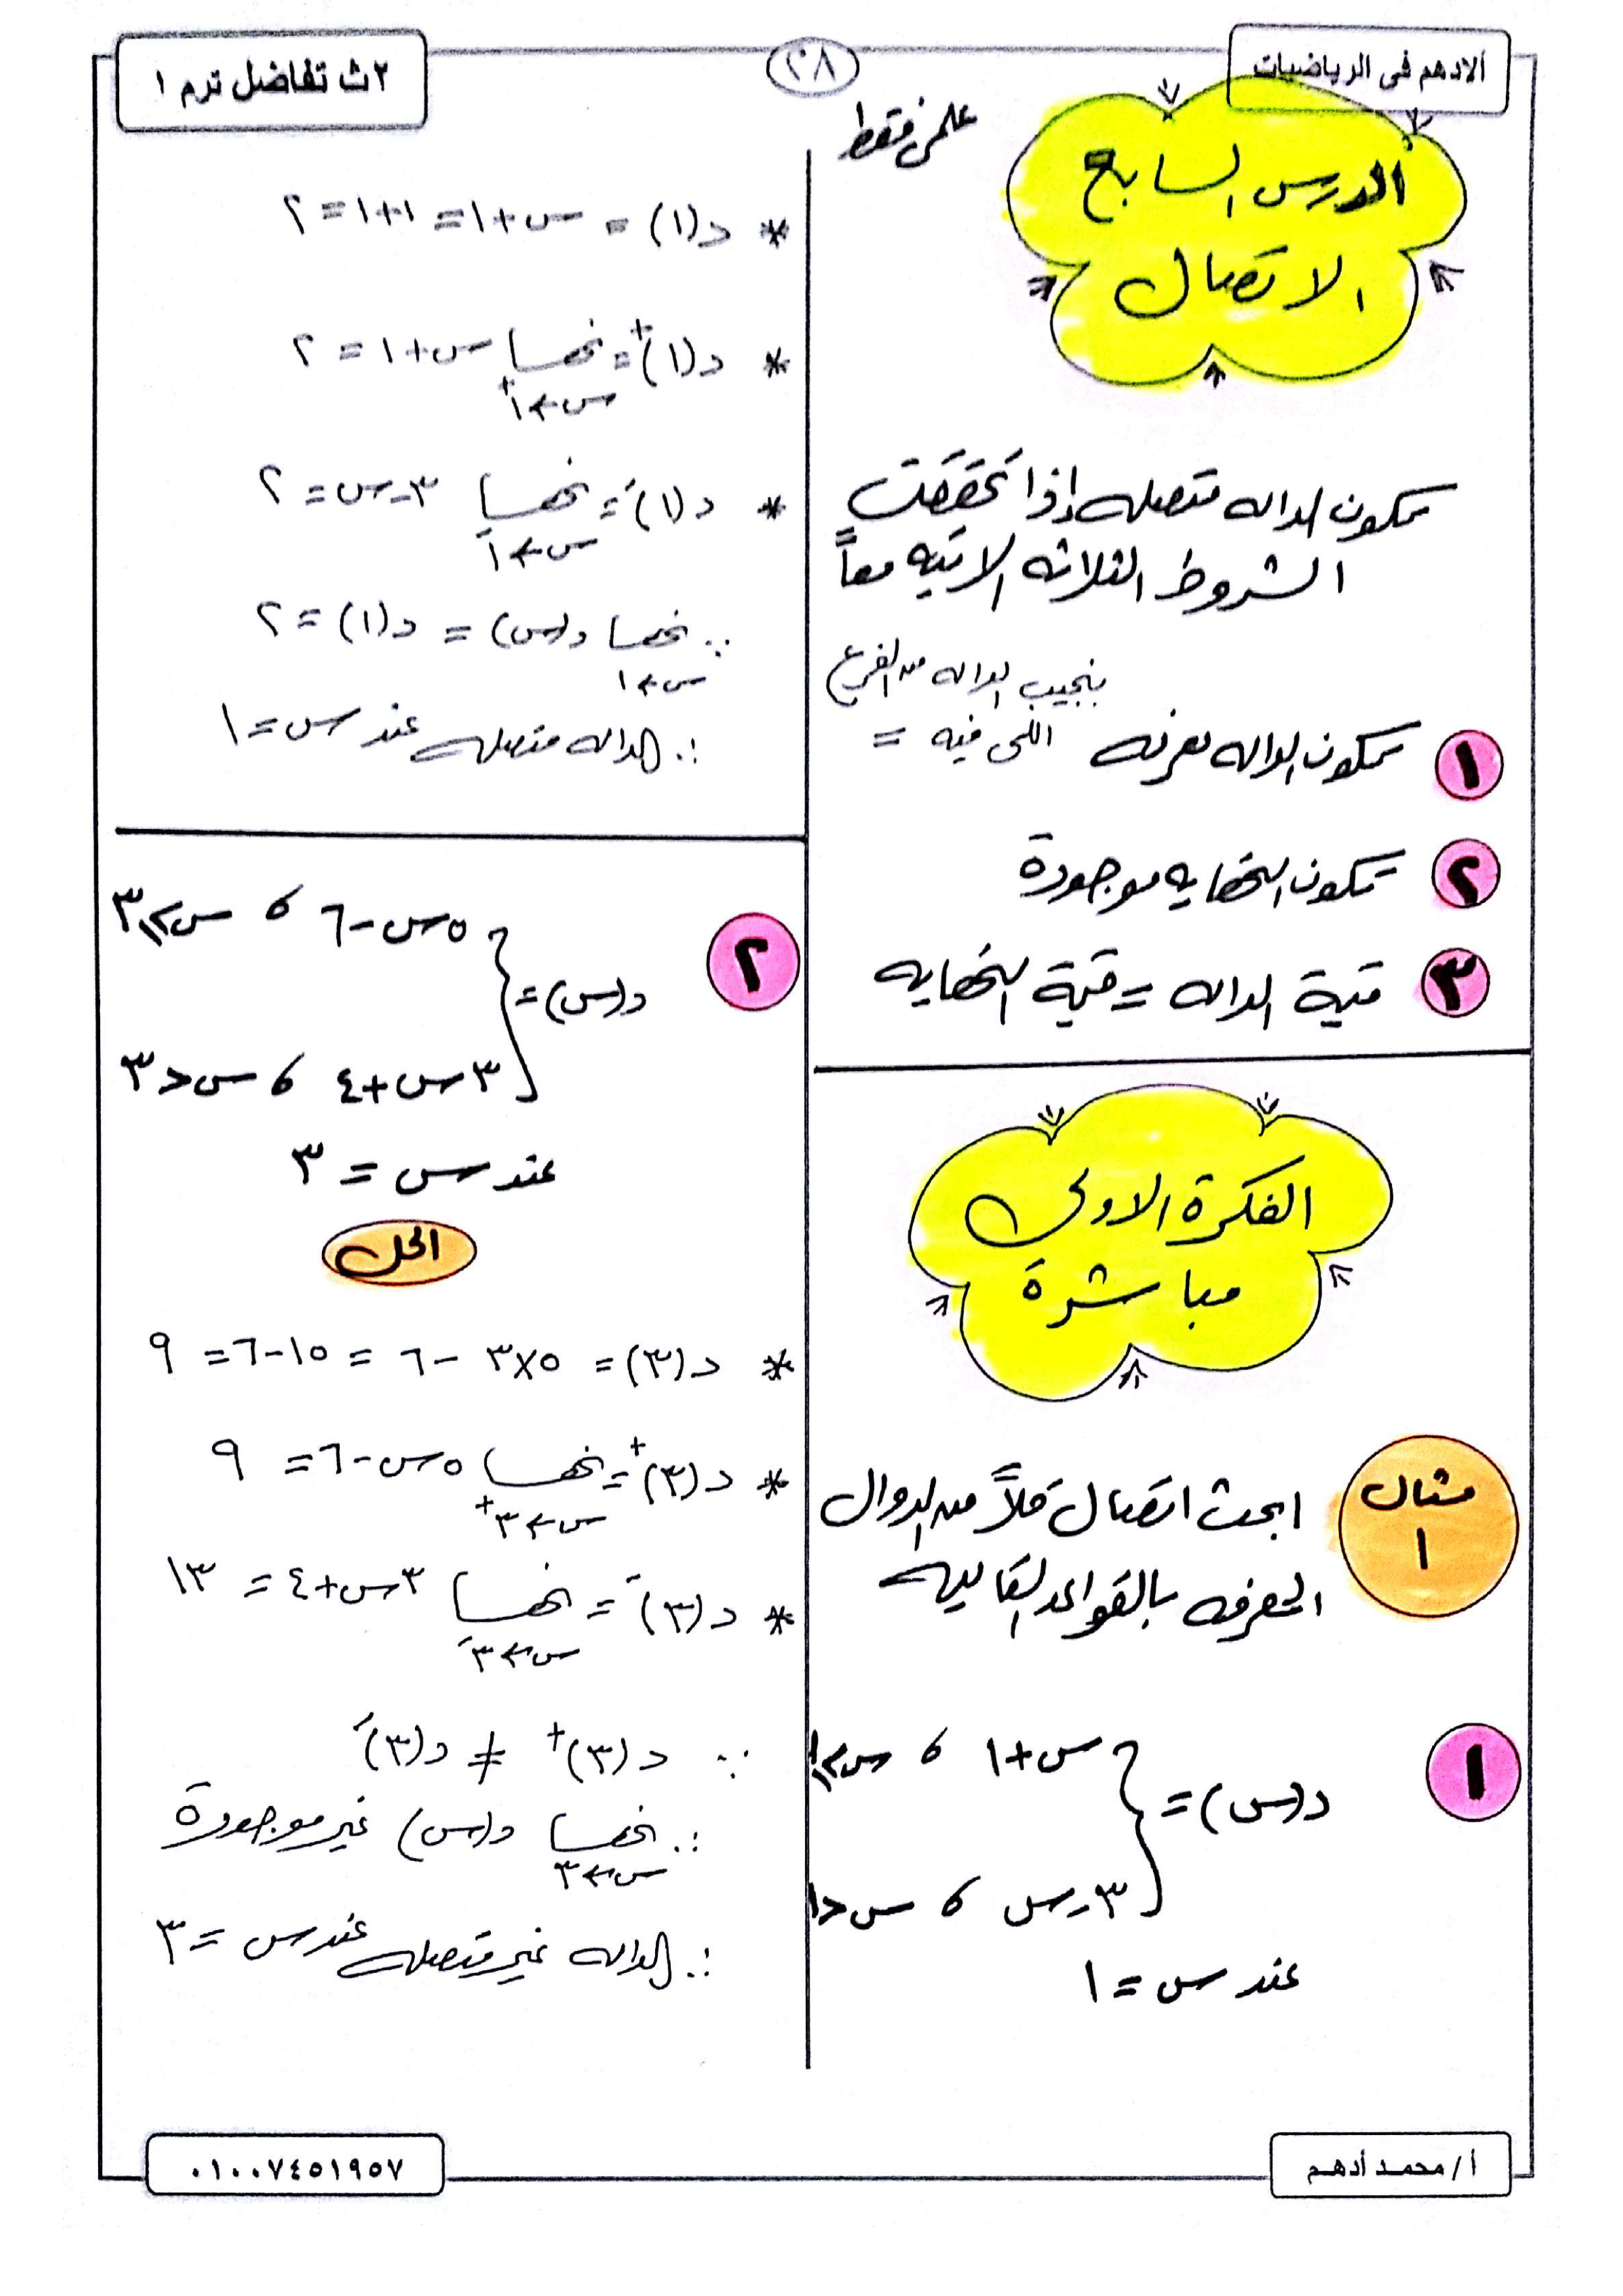 الادهم فى الرياضيات
٢٨
٢ث تفاضل ترم ١
علمى فقط
الدرس السابع
الاتصال
تكون الداله متصله إذا تحققت
الشروط الثلاثه الاتيه معاً
١ تكون الداله معرفه
بنجيب الداله من الفرع
اللى فيه =
٢ تكون النهايه موجودة
٣ قيمة الداله = قيمة النهايه
الفكرة الاولى
مباشرة
مثال
١
ابحث اتصال كلاً من الدوال
المعرفه بالقواعد التاليه
١
س+١ ، س≥١
د(س) =
٣-س ، س<١
عند س = ١
* د(١) = س+١ = ١+١ = ٢
* د(١)+ = نهـــا س+١ = ٢
س←١+
* د(١)- = نهـــا ٣-س = ٢
س←١-
∵ نهـــا د(س) = د(١) = ٢
س←١
∴ الداله متصله عند س = ١
٢
٥س-٦ ، س≥٣
د(س) =
٣س+٤ ، س<٣
عند س = ٣
الحل
* د(٣) = ٥×٣ - ٦ = ١٥-٦ = ٩
* د(٣)+ = نهـــا ٥س-٦ = ٩
س←٣+
* د(٣)- = نهـــا ٣س+٤ = ١٣
س←٣-
∵ د(٣)+ ≠ د(٣)-
∴ نهـــا د(س) غير موجودة
س←٣
∴ الداله غير متصله عند س = ٣
أ/ محمد أدهم
٠١٠٠٧٤٥١٩٥٧